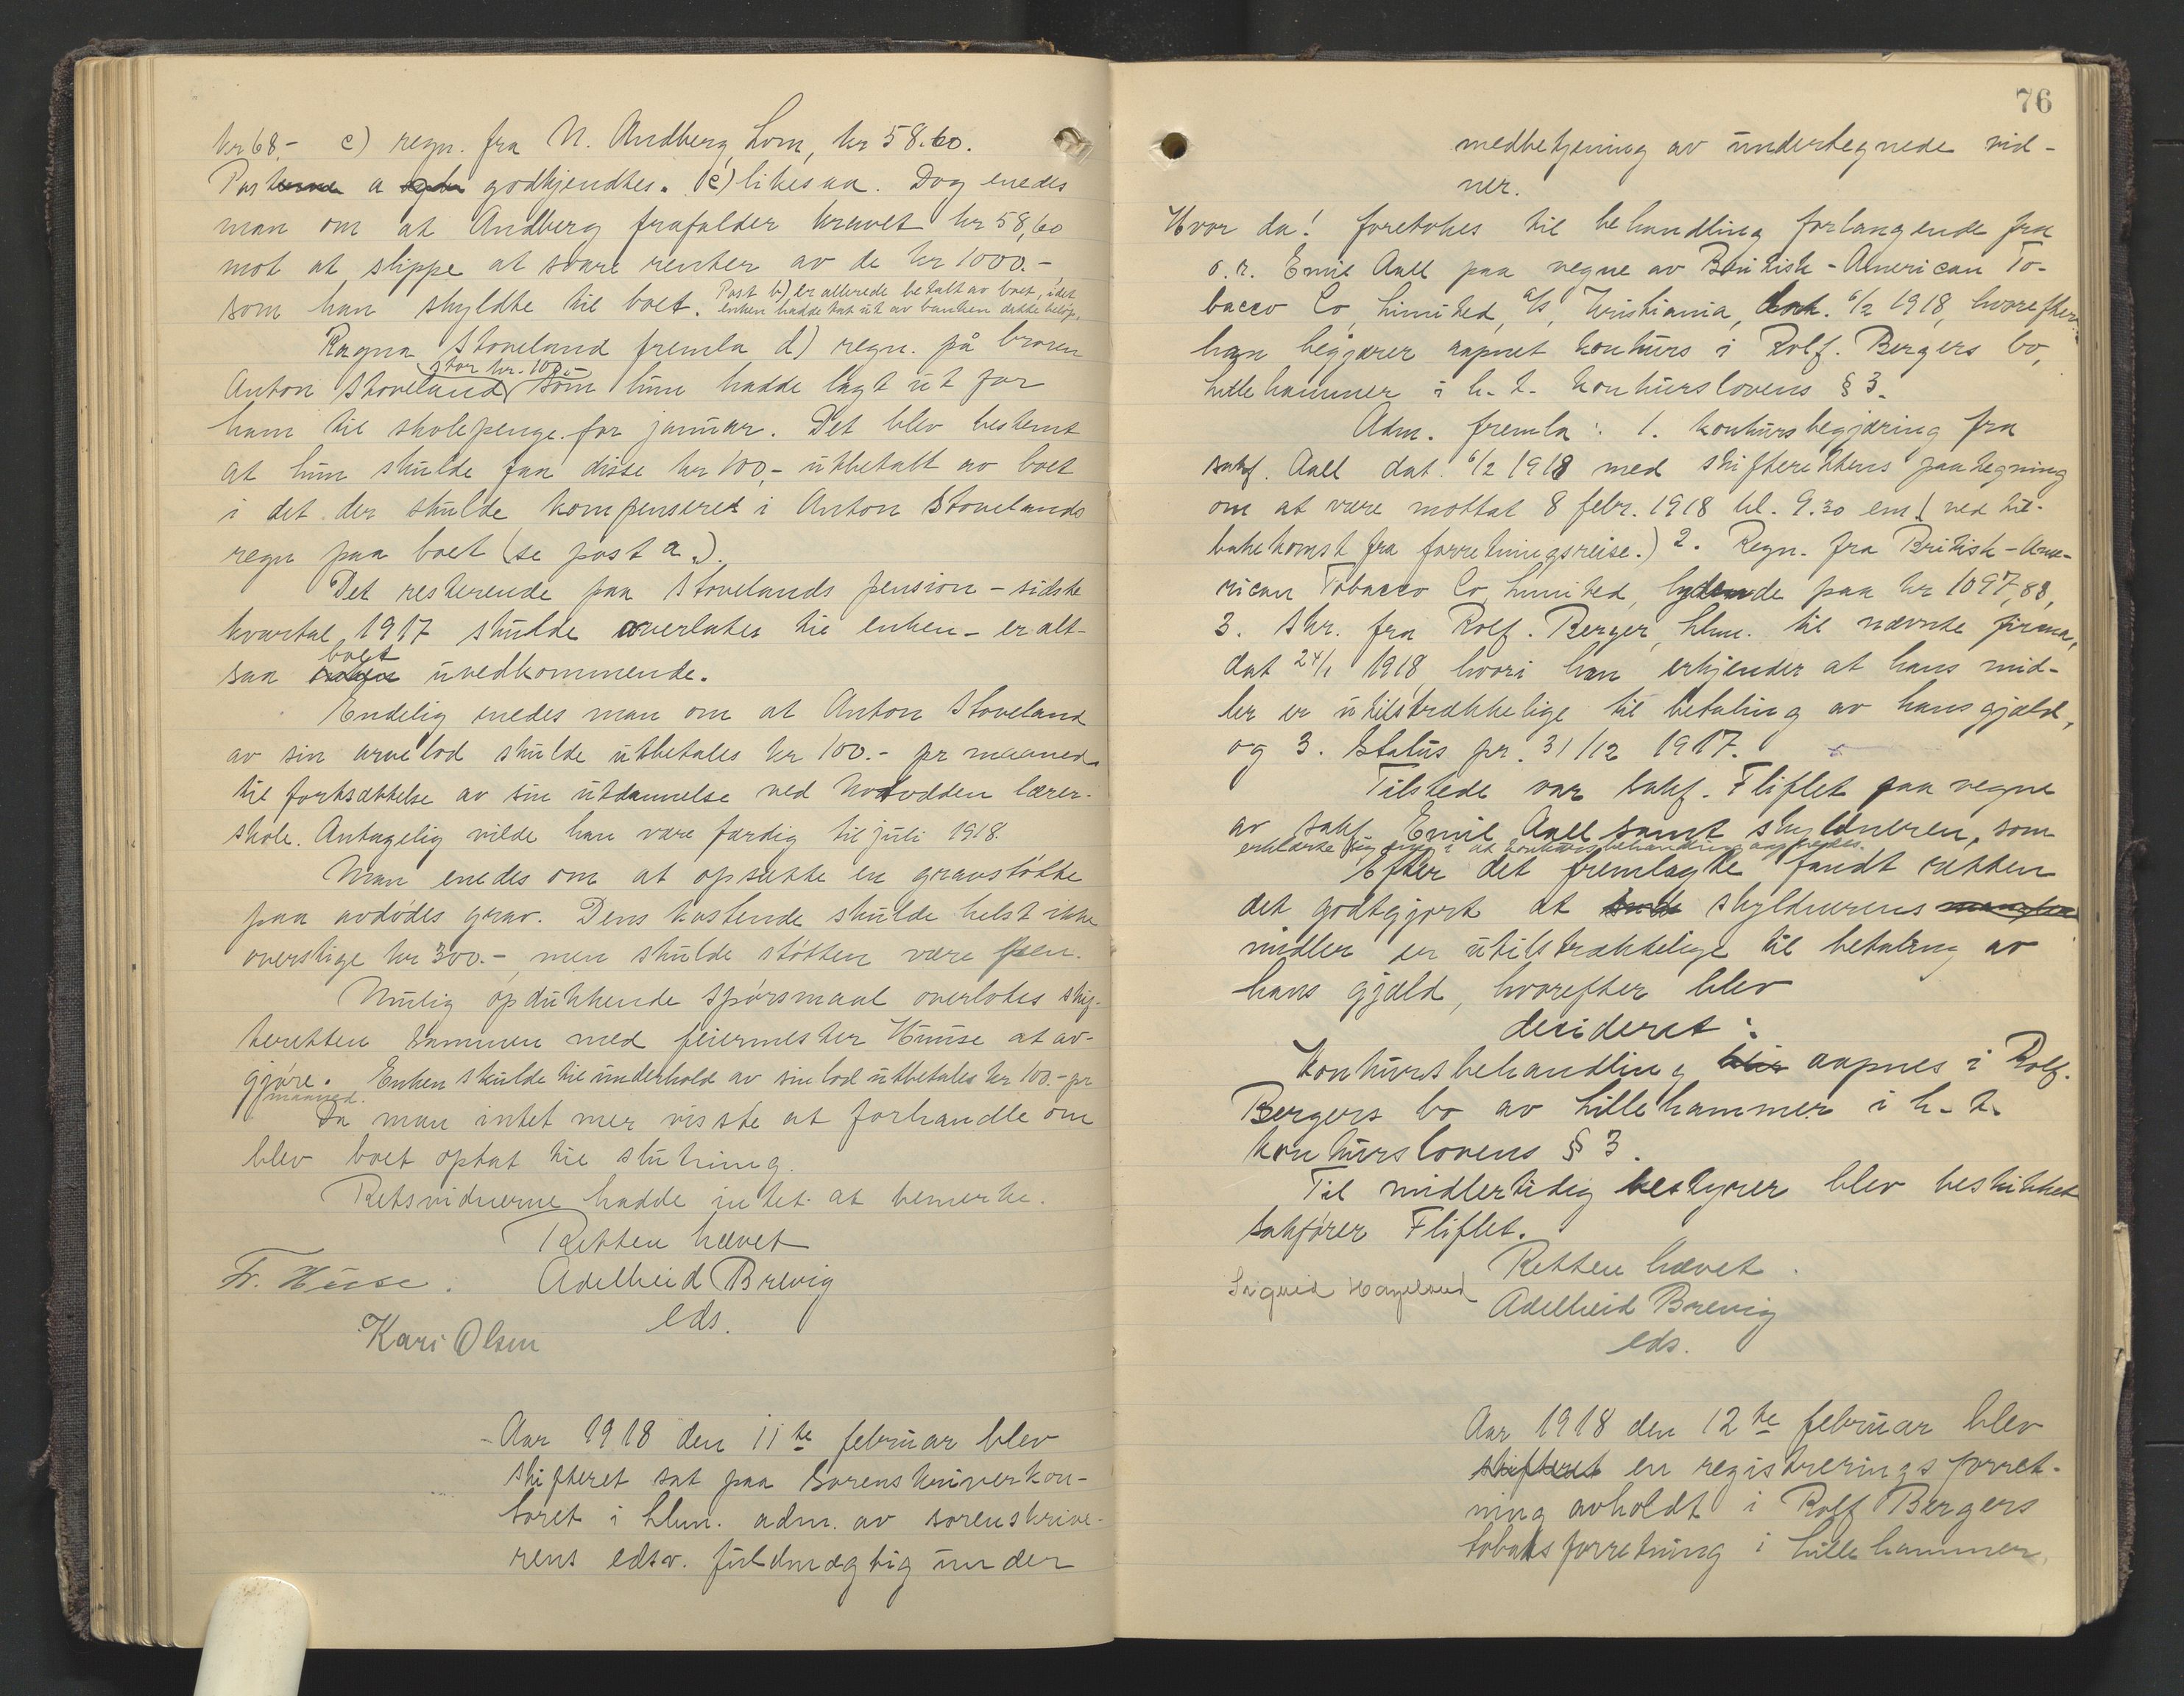 kr 68,- c) regn. fra N. Andberg, Lom, kr 58.60.
Posterne a godkjendtes. c) likesaa. Dog enedes
man om at Andberg frafalder kravet kr 58,60
mot at slippe at svare renter av de kr 1000.-
som han skyldte til boet. Post b) er allerede betalt av boet, idet
enken hadde tat ut av banken dette beløp.
Ragna Stoveland fremla d) regn. på broren
stor kr. 100.-
Anton Stoveland som hun hadde lagt ut for
ham til skolepenge for januar. Det blev bestemt
at hun skulde faa disse kr 100,- utbetalt av boet
i det der skulde kompenseres i Anton Stovelands
regn paa boet (se post a.).
Det resterende paa Stovelands pension - sidste
kvartal 1917 skulde overlates til enken - er alt-
boet
saa uvedkommende.
Endelig enedes man om at Anton Stoveland
av sin arvelod skulde utbetales kr 100.- pr maaned
til fortsættelse av sin utdannelse ved Notodden lærer-
skole. Antagelig vilde han være færdig til juli 1918.
Man enedes om at opsætte en gravstøtte
paa avdødes grav. Dens kostende skulde helst ikke
overstige kr 300.-, men skulde støtten være pen.
Mulig opdukkende spørsmaal overlotes skif-
teretten sammen med feiermester Huuse at av-
gjøre. Enken skulde til underhold av sin lod utbetales kr 100.- pr
maaned.
Da man intet mer visste at forhandle om
blev boet optat til slutning.
Retsvidnerne hadde intet at bemerke.
Retten hævet
Fr. Huse. Adelheid Brevig
eds.
Kari Olsen
Aar 1918 den 11te februar blev
skifteret sat paa Sorenskriverkon-
toret i Lhmr. adm. av sorenskrive-
rens edsv. fuldmægtig under
76
medbetjening av undertegnede vid-
ner.
Hvor da! foretokes til behandling forlangende fra
o.r. Emil Aall paa vegne av British-American To-
bacco Co, Limited, A/S, Kristiania, dat. 6/2 1918, hvorefter
han begjærer aapnet konkurs i Rolf. Bergers bo,
Lillehammer i h. t. konkurslovens § 3.
Adm. fremla: 1. konkursbegjæring fra
sakf. Aall dat. 6/2 1918 med skifterettens paategning
om at være mottat 8 febr. 1918 kl. 9.30 em. (ved til-
bakekomst fra forretningsreise.) 2. Regn. fra British-Ame-
rican Tobacco Co, Limited, lydende paa kr 1097,88,
3. Skr. fra Rolf. Berger, Lhmr. til nævnte firma,
dat 24/1 1918, hvori han erkjender at hans mid-
ler er utilstrækkelige til betaling av hans gjæld,
og 3. Status pr. 31/12 1917.
Tilstede var sakf. Fliflet paa vegne
av sakf. Emil Aall samt skyldneren, som
erklærte sig enig i at konkursbehandling aapnedes.
Efter det fremlagte fandt retten
det godtgjort at skyldnerens
midler er utilstrækkelige til betaling av
hans gjæld, hvorefter blev
decideret:
Konkursbehandling blir aapnes i Rolf.
Bergers bo av Lillehammer i h. t.
konkurslovens § 3.
Til midlertidig bestyrer blev beskikket
sakfører Fliflet.
Retten hævet.
Sigrid Hagelund Adelheid Brevig
eds.
Aar 1918 den 12te februar blev
skifteret en registreringsforret-
ning avholdt i Rolf Bergers
tobaksforretning i Lillehammer,